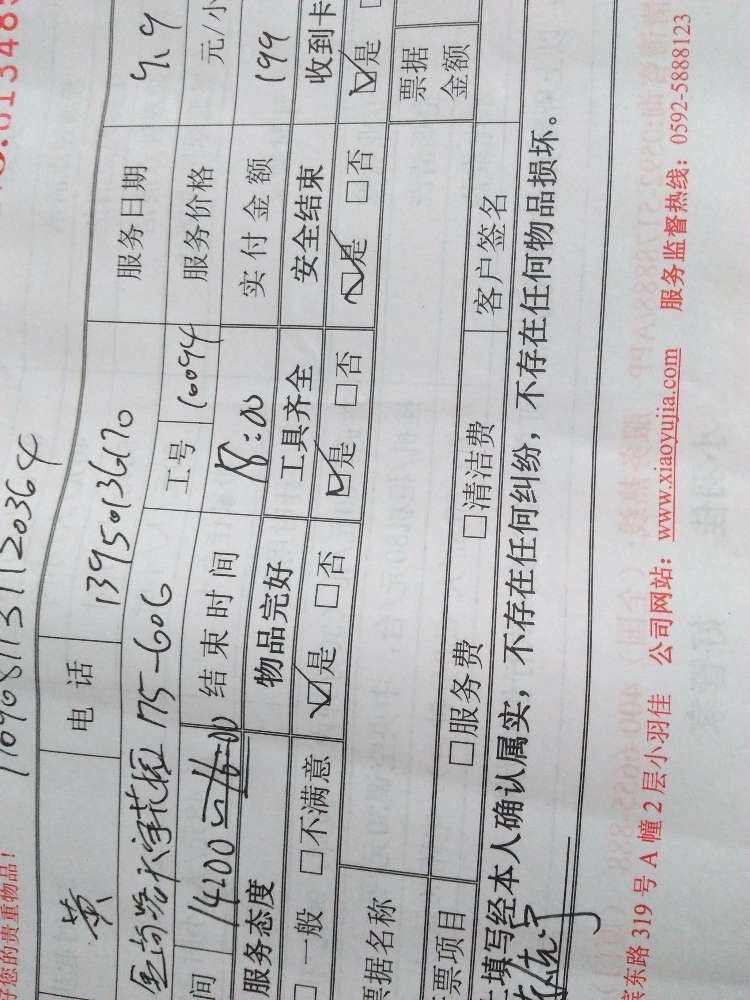 好您的贵重物品！
1109681131120364
黄 电话 13950136170 服务日期
175-606 工号 服务价格 元/小
间 14:00 16:00 结束时间 18:00 实付金额 199
服务态度 物品完好 工具齐全 安全结束 收到卡
□ 一般 □不满意 ☑是 □否 ☑是 □否 ☑是 □否 ☑是
票据名称 票据金额
票项目 □服务费 □清洁费 客户签名
填写经本人确认属实，不存在任何纠纷，不存在任何物品损坏。
滨东路 319 号 A 幢 2 层小羽佳 公司网站：www.xiaoyujia.com 服务监督热线：0592-5888123